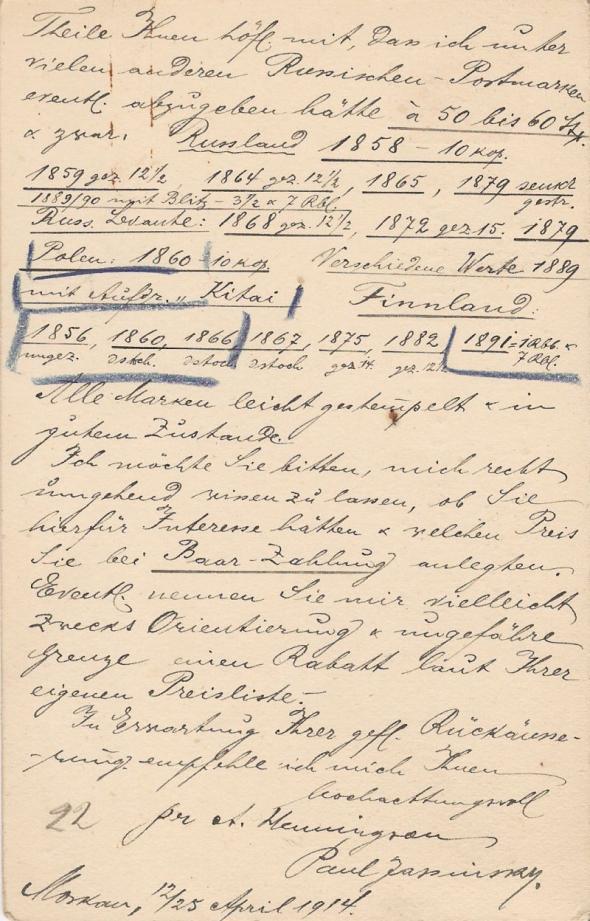 Theile Ihnen höfl. mit, dass ich unter
vielen anderen Russischen-Postmarken
eventl. abzugeben hätte à 50 bis 60 Stk.
& zwar: Russland 1858 – 10 kop.
1859 gez 12½ 1864 gez. 12½, 1865, 1879 senkr gestr.
1889/90 mit Blitz – 3½ & 7 Rbl.
Russ. Levante: 1868 gez. 12½, 1872 gez 15. 1879
Polen: 1860 10 kop Verschiedene Werte 1889
mit Aufdr. „ Kitai Finnland:
1856, 1860, 1866, 1867, 1875, 1882, 1891 = 1 Rbl. &
ungez. dstch. dstoch dstoch gez 14. gez. 12½ 7 Rbl.
Alle Marken leicht gestempelt & in
gutem Zustande.
Ich möchte Sie bitten, mich recht
umgehend wissen zu lassen, ob Sie
hierfür Interesse hätten & welchen Preis
Sie bei Baar-Zahlung anlegten.
Eventl. nennen Sie mir vielleicht
zwecks Orientierung & ungefähre
Grenze einen Rabatt laut Ihrer
eigenen Preisliste.–
In Erwartung Ihrer gefl. Rückäusse-
-rung empfehle ich mich Ihnen
hochachtungsvoll
22 pr A. Henningson
Paul
Moskau, 12/25 April 1914.